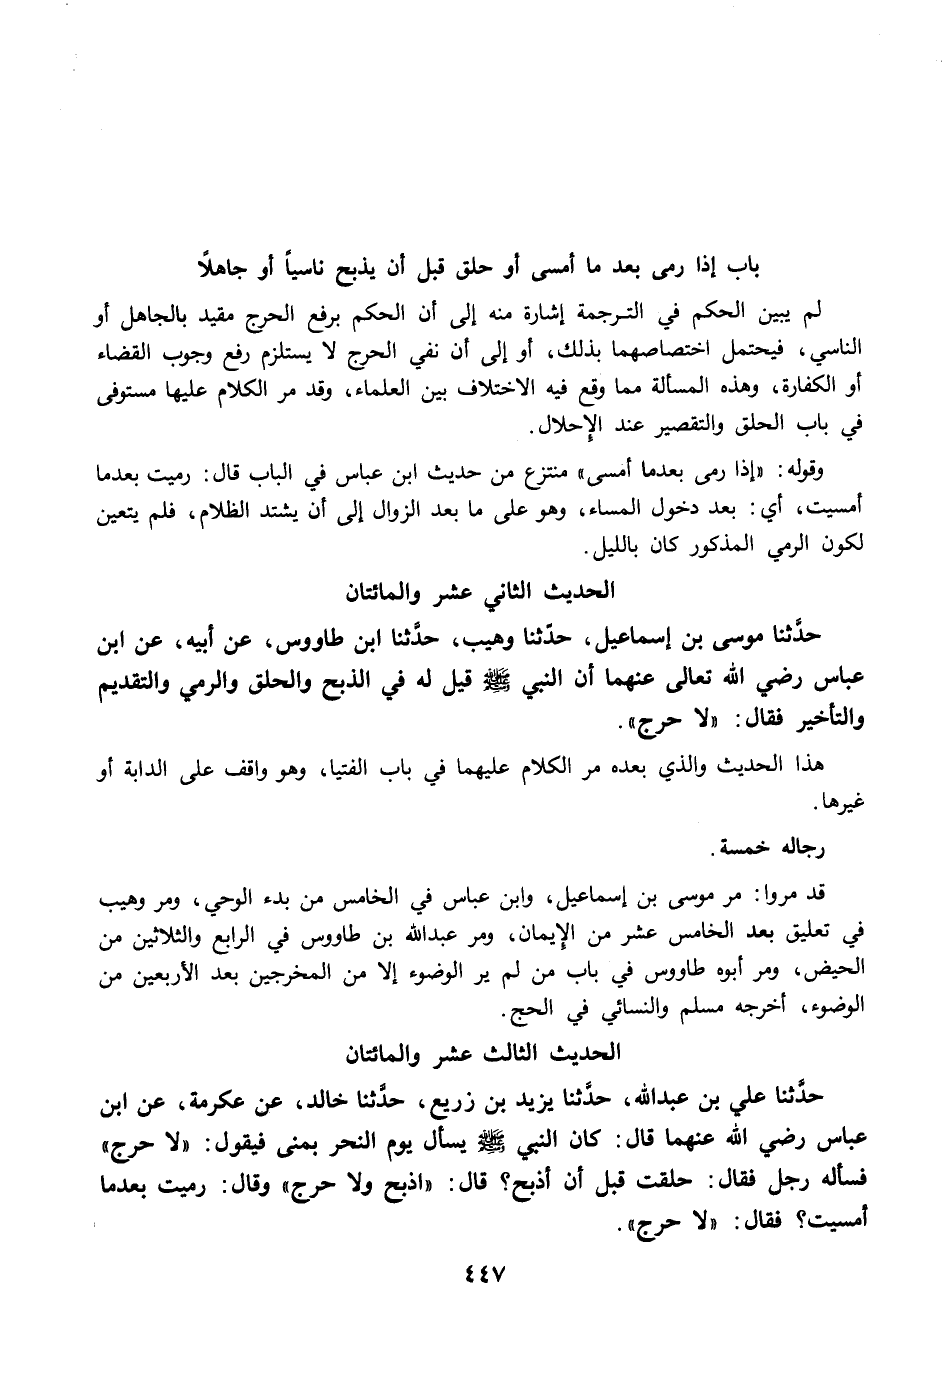 باب إذا رمى بعد ما أمسى أو حلق قبل أن يذبح ناسياً أو جاهلاً
لم يبين الحكم في الترجمة إشارة منه إلى أن الحكم برفع الحرج مقيد بالجاهل أو
الناسي، فيحتمل اختصاصهما بذلك، أو إلى أن نفي الحرج لا يستلزم رفع وجوب القضاء
أو الكفارة، وهذه المسألة مما وقع فيه الاختلاف بين العلماء، وقد مر الكلام عليها مستوفى
في باب الحلق والتقصير عند الإحلال.
وقوله: «إذا رمى بعدما أمسى» منتزع من حديث ابن عباس في الباب قال: رميت بعدما
أمسيت، أي: بعد دخول المساء، وهو على ما بعد الزوال إلى أن يشتد الظلام، فلم يتعين
لكون الرمي المذكور كان بالليل.
الحديث الثاني عشر والمائتان
حدَّثنا موسى بن إسماعيل، حدّثنا وهيب، حدَّثنا ابن طاووس، عن أبيه، عن ابن
عباس رضي الله تعالى عنهما أن النبي ﷺ قيل له في الذبح والحلق والرمي والتقديم
والتأخير فقال: «لا حرج».
هذا الحديث والذي بعده مر الكلام عليهما في باب الفتيا، وهو واقف على الدابة أو
غيرها.
رجاله خمسة.
قد مروا: مر موسى بن إسماعيل، وابن عباس في الخامس من بدء الوحي، ومر وهيب
في تعليق بعد الخامس عشر من الإيمان، ومر عبدالله بن طاووس في الرابع والثلاثين من
الحيض، ومر أبوه طاووس في باب من لم ير الوضوء إلا من المخرجين بعد الأربعين من
الوضوء، أخرجه مسلم والنسائي في الحج.
الحديث الثالث عشر والمائتان
حدَّثنا علي بن عبدالله، حدَّثنا يزيد بن زريع، حدَّثنا خالد، عن عكرمة، عن ابن
عباس رضي الله عنهما قال: كان النبي ﷺ يسأل يوم النحر بمنى فيقول: «لا حرج»
فسأله رجل فقال: حلقت قبل أن أذبح؟ قال: «اذبح ولا حرج» وقال: رميت بعدما
أمسيت؟ فقال: «لا حرج».
٤٤٧